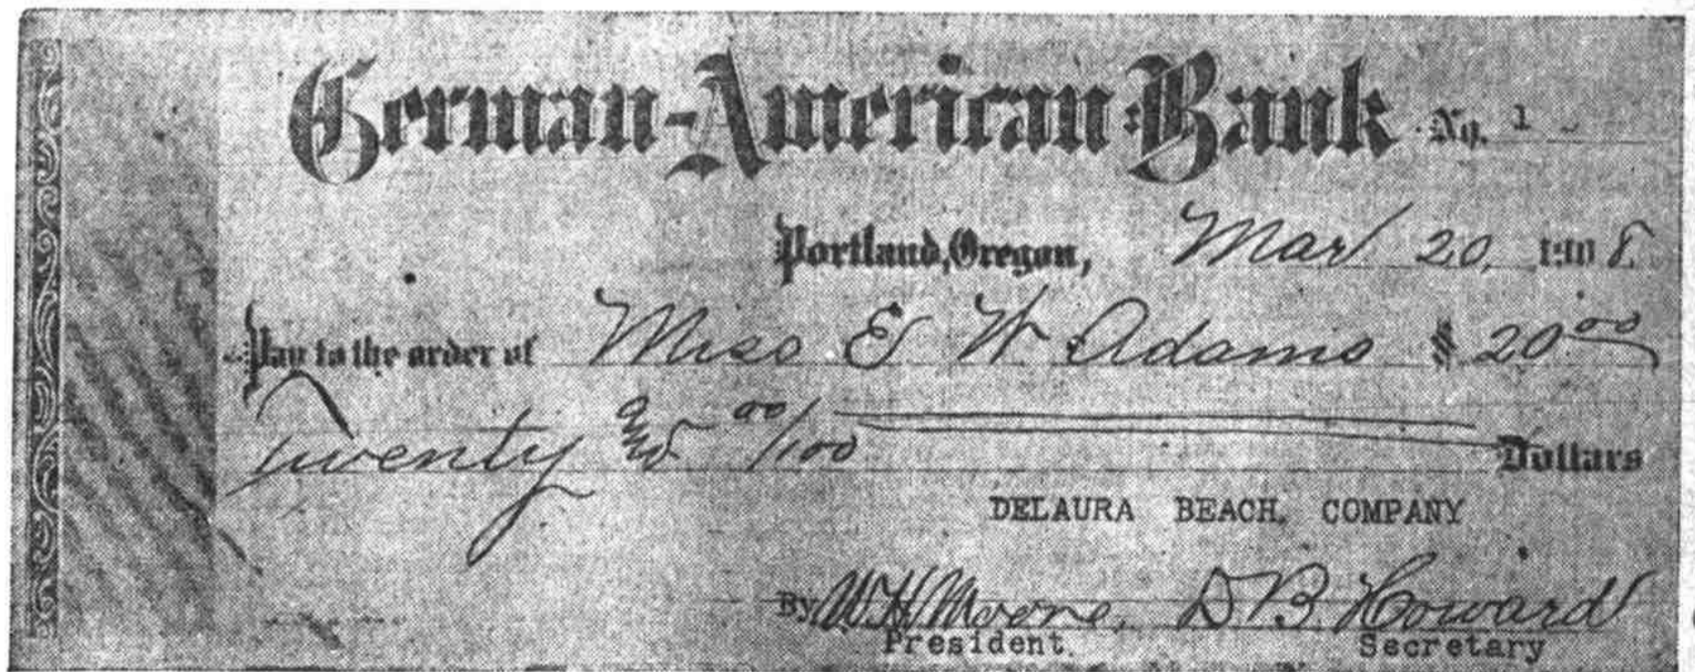 German-American Bank No. 1
Portland, Oregon, Mar 20, 1908.
Pay to the order of Miss E W Adams $ 20 00
Twenty and 00/100 Dollars
DELAURA BEACH, COMPANY
By W H Moore, D B Howard
President. Secretary